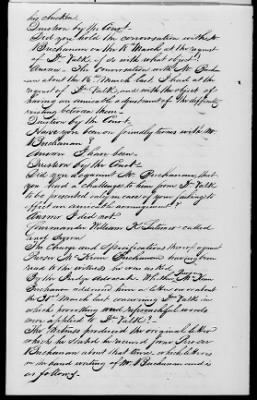 Question by the Court.
Did you hold the conversation with Mr
Buchanan on the 16 March at the request
of Dr. Valk, if so with what object?
Answer. The conversation with Mr Buch
anan about the 16th March last I had at the
request of Dr Valk, and with the object of
having an amicable adjustment of the difficulty
existing between them.
Question by the Court.
Have you been on friendly terms with Mr
Buchanan?
Answer I have been.
Question by the Court
Did you acquaint Mr. Buchanan, that
you had a challenge to him from Dr Valk
to be presented only in case of your failing to
effect an amicable arrangement?
Answer I did not.
Commander William K. Latimer called
and Sworn
The Charge and Specifications thereof against
Purser M. Kean Buchanan having been
read to the witness, he was asked
By the Judge Advocate. Did Purser M. Kean
Buchanan address him a letter on or about
the 30th March last concerning Dr Valk in
which provoking and reproachful words
were applied to Dr Valk?
The Witness produced the original letter
which he stated he received from Purser
Buchanan about that time, which letter is
in the hand writing of Mr Buchanan and is
as follows.